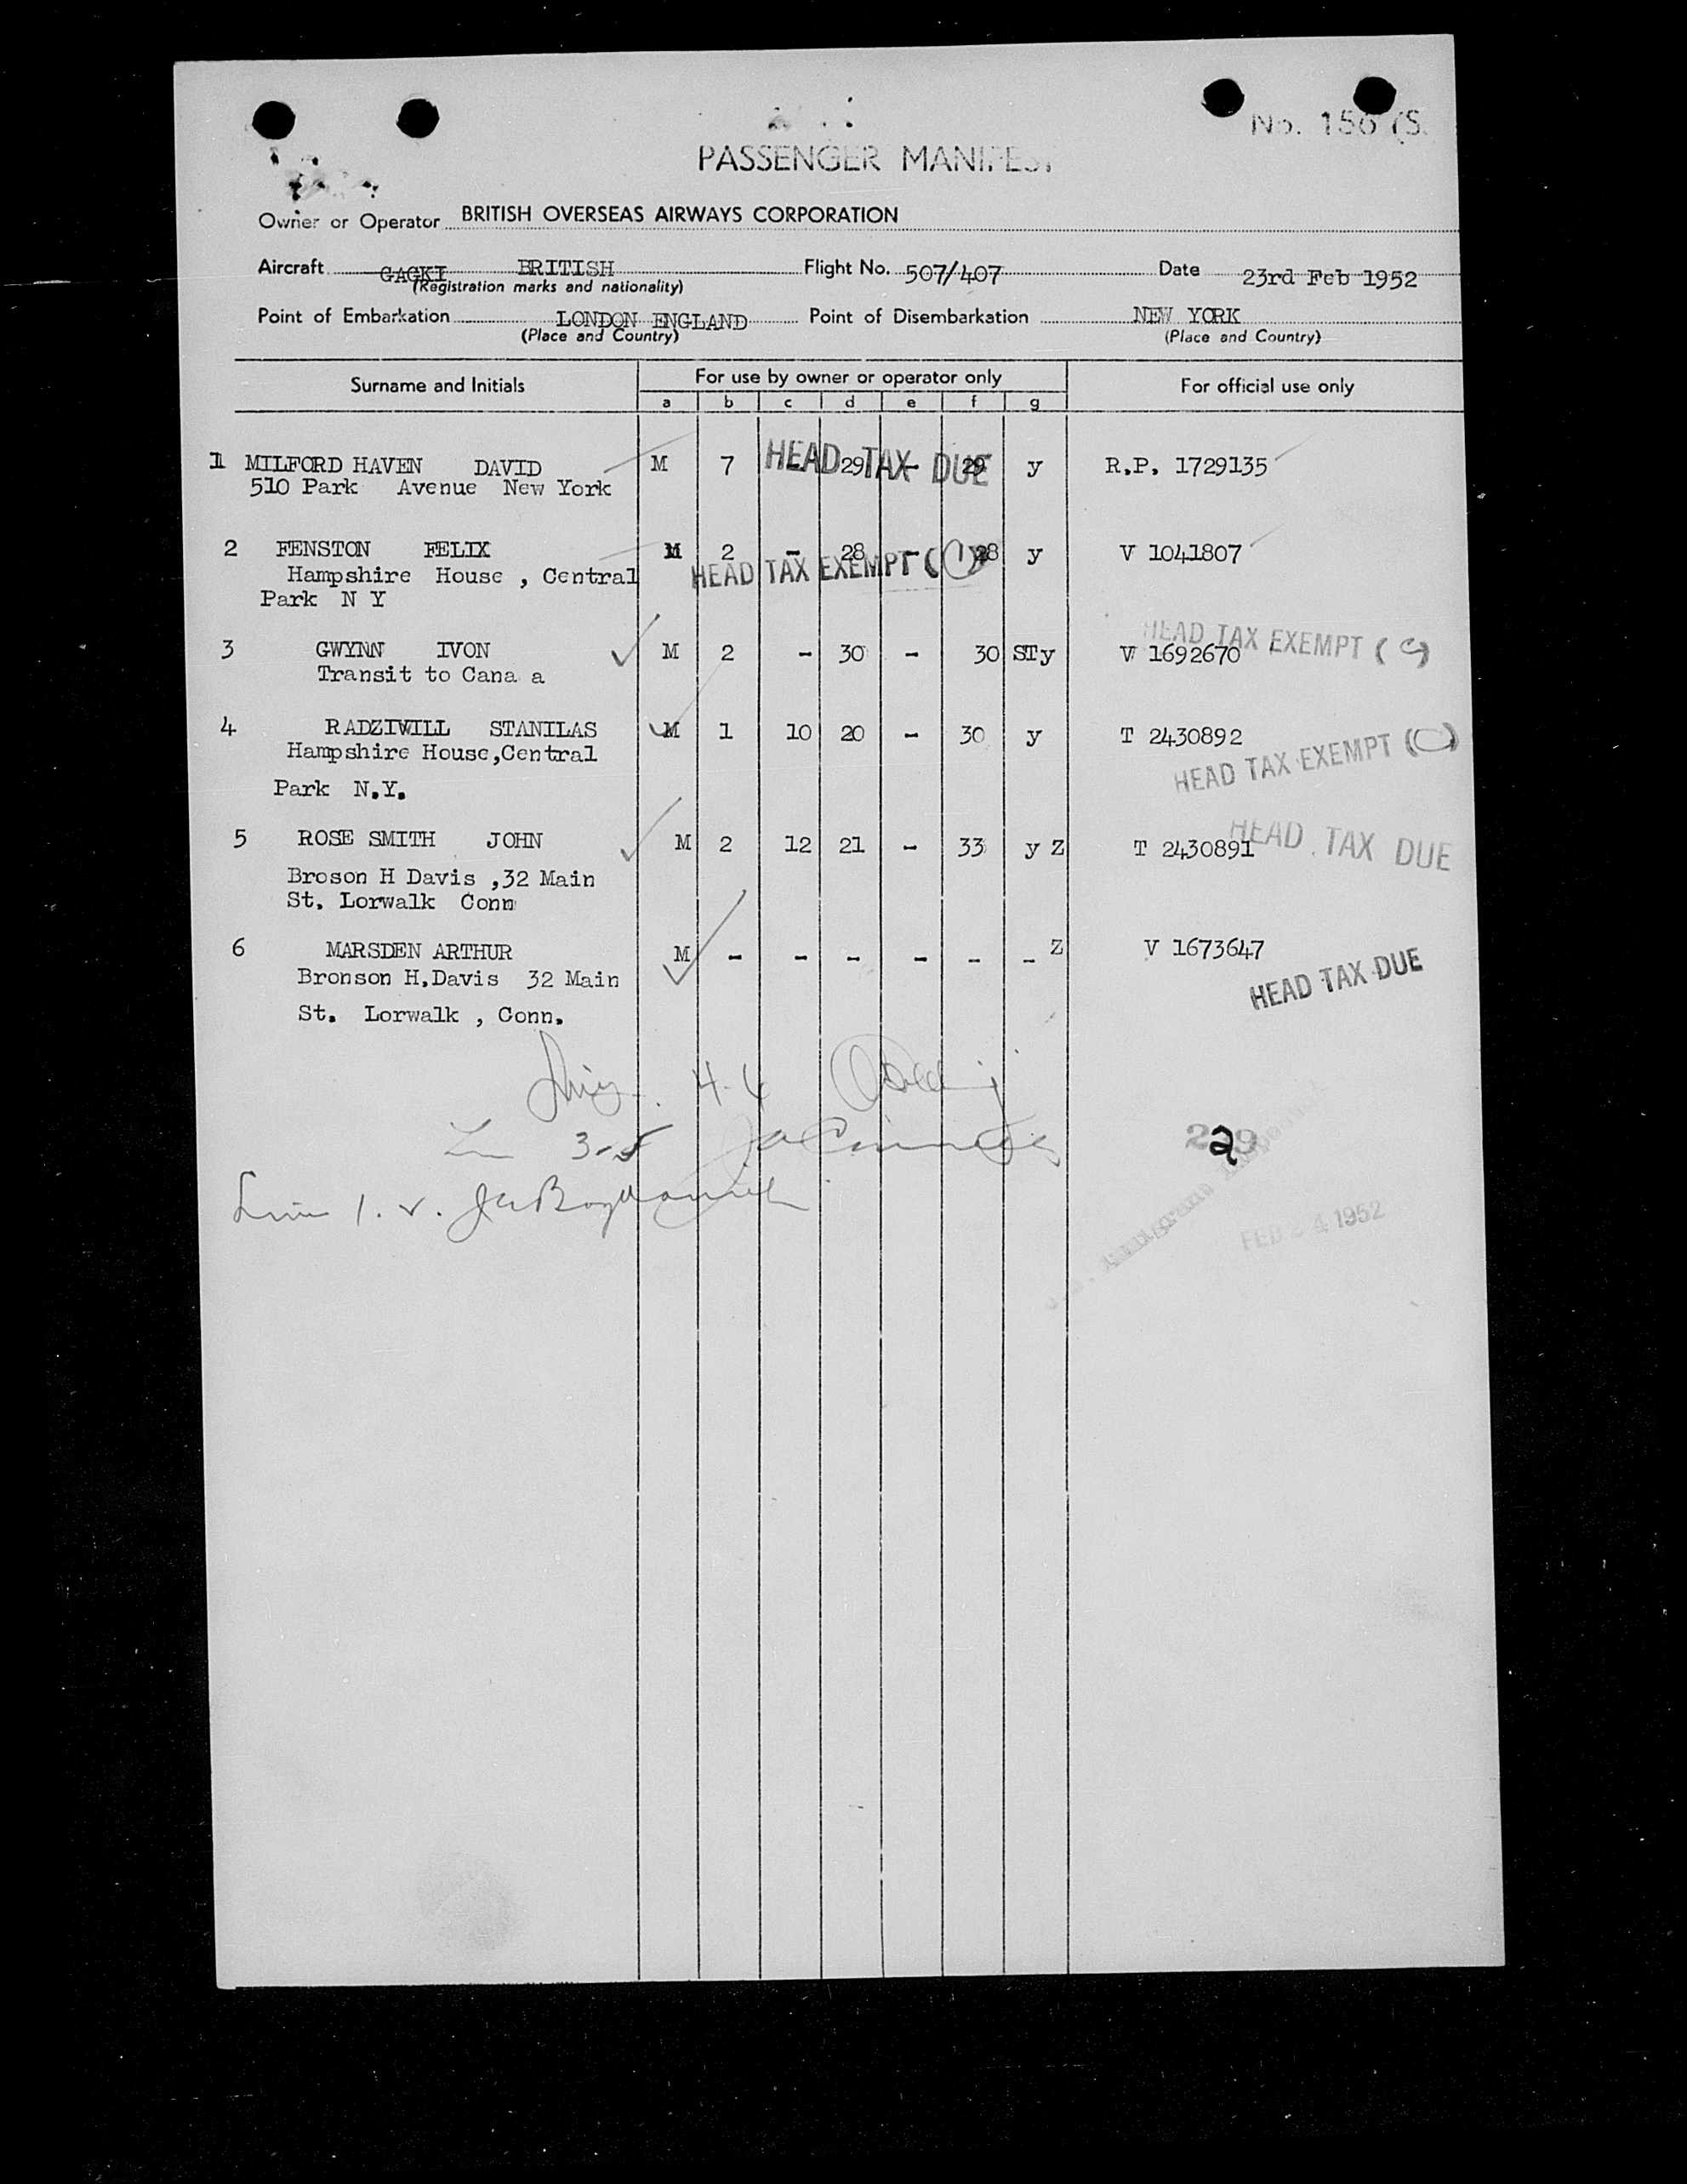 No. 156 (S.
PASSENGER MANIFEST
Owner or Operator BRITISH OVERSEAS AIRWAYS CORPORATION
Aircraft GAGKI BRITISH Flight No. 507/407 Date 23rd Feb 1952
(Registration marks and nationality)
Point of Embarkation LONDON ENGLAND Point of Disembarkation NEW YORK
(Place and Country) (Place and Country)
Surname and Initials For use by owner or operator only For official use only
a b c d e f g
1 MILFORD HAVEN DAVID M 7 - 29 - 29 y R.P. 1729135
HEAD TAX DUE
510 Park Avenue New York
2 FENSTON FELIX M 2 - 28 - 28 y V 1041807
HEAD TAX EXEMPT (1)
Hampshire House , Central
Park N Y
HEAD TAX EXEMPT ( C)
3 GWYNN IVON M 2 - 30 - 30 STy V 1692670
Transit to Cana a
4 RADZIWILL STANILAS M 1 10 20 - 30 y T 2430892
Hampshire House,Central
HEAD TAX EXEMPT (C)
Park N.Y.
5 ROSE SMITH JOHN M 2 12 21 - 33 y Z T 2430891
HEAD TAX DUE
Broson H Davis ,32 Main
St. Lorwalk Conn
6 MARSDEN ARTHUR M - - - - - - Z V 1673647
Bronson H.Davis 32 Main
HEAD TAX DUE
St. Lorwalk , Conn.
4-6
3-5
229
2
FEB 24 1952